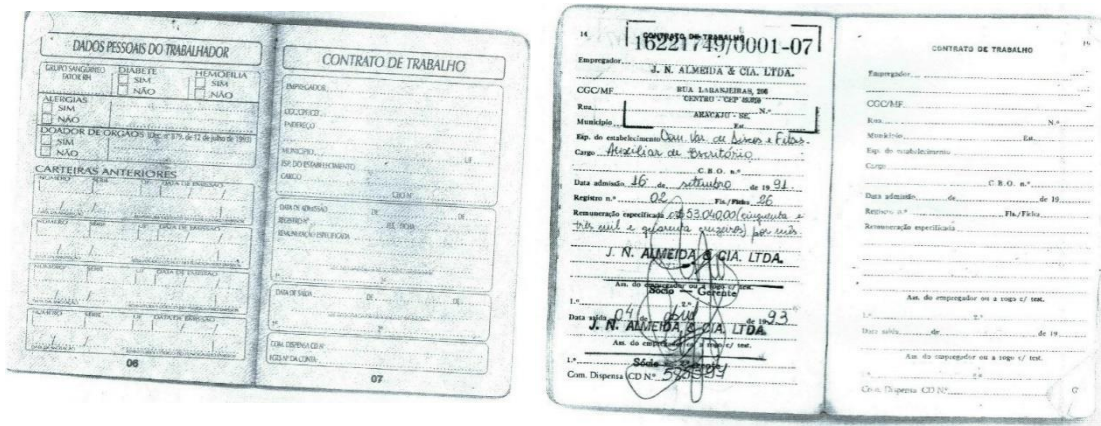 DADOS PESSOAIS DO TRABALHADOR
GRUPO SANGÜÍNEO
FATOR RH
DIABETE
SIM
NÃO
HEMOFILIA
SIM
NÃO
ALERGIAS
SIM
NÃO
DOADOR DE ORGÃOS (Dec. nº 879, de 12 de julho de 1993)
SIM
NÃO
CARTEIRAS ANTERIORES
NÚMERO SÉRIE UF DATA DE EMISSÃO
NÚMERO SÉRIE UF DATA DE EMISSÃO
NÚMERO SÉRIE UF DATA DE EMISSÃO
NÚMERO SÉRIE UF DATA DE EMISSÃO
06
CONTRATO DE TRABALHO
EMPREGADOR
CGC/CPF/CEI
ENDEREÇO
MUNICÍPIO UF
ESP. DO ESTABELECIMENTO
CARGO
CBO Nº
DATA DE ADMISSÃO DE DE
REGISTRO Nº FLS. / FICHA
REMUNERAÇÃO ESPECIFICADA
DATA DE SAÍDA DE DE
COM. DISPENSA CD Nº
FGTS Nº DA CONTA
07
14
CONTRATO DE TRABALHO
16221749/0001-07
Empregador
J. N. ALMEIDA & CIA. LTDA.
CGC/MF RUA LARANJEIRAS, 206
CENTRO - CEP
Rua N.º
ARACAJU - SE.
Município Est.
Esp. do estabelecimento Com Var. de Discos e Fitas
Cargo Auxiliar de Escritório
C.B.O. n.º
Data admissão 16 de setembro de 19 91
Registro n.º 02 Fls./Ficha 26
Remuneração especificada cr$ 53.040,00 (cinquenta e
três mil e quarenta cruzeiros) por mês
J. N. ALMEIDA & CIA. LTDA.
Ass. do empregador ou a rogo c/ test.
Sócio — Gerente
1.º 2.º
Data saída 04 de abril de 19 93
J. N. ALMEIDA & CIA. LTDA.
Ass. do empregador ou a rogo c/ test.
1.º Sócio — Gerente
Com. Dispensa CD N.º
CONTRATO DE TRABALHO
Empregador
CGC/MF
Rua N.º
Município Est.
Esp. do estabelecimento
Cargo
C.B.O. n.º
Data admissão de de 19
Registro n.º Fls./Ficha
Remuneração especificada
Ass. do empregador ou a rogo c/ test.
1.º 2.º
Data saída de de 19
Ass. do empregador ou a rogo c/ test.
1.º 2.º
Com. Dispensa CD N.º